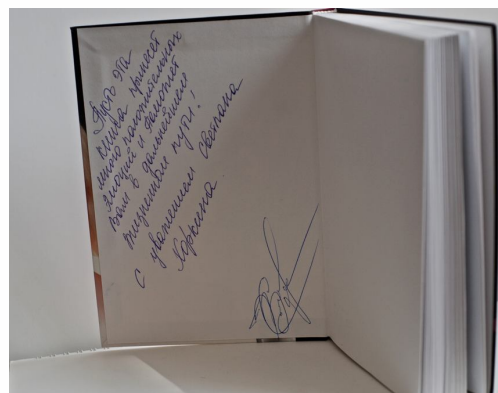 Пусть эта
книга принесёт
много положительных
эмоций и поможет
Вам в дальнейшем
жизненном пути!
С уважением Светлана
Хоркина.